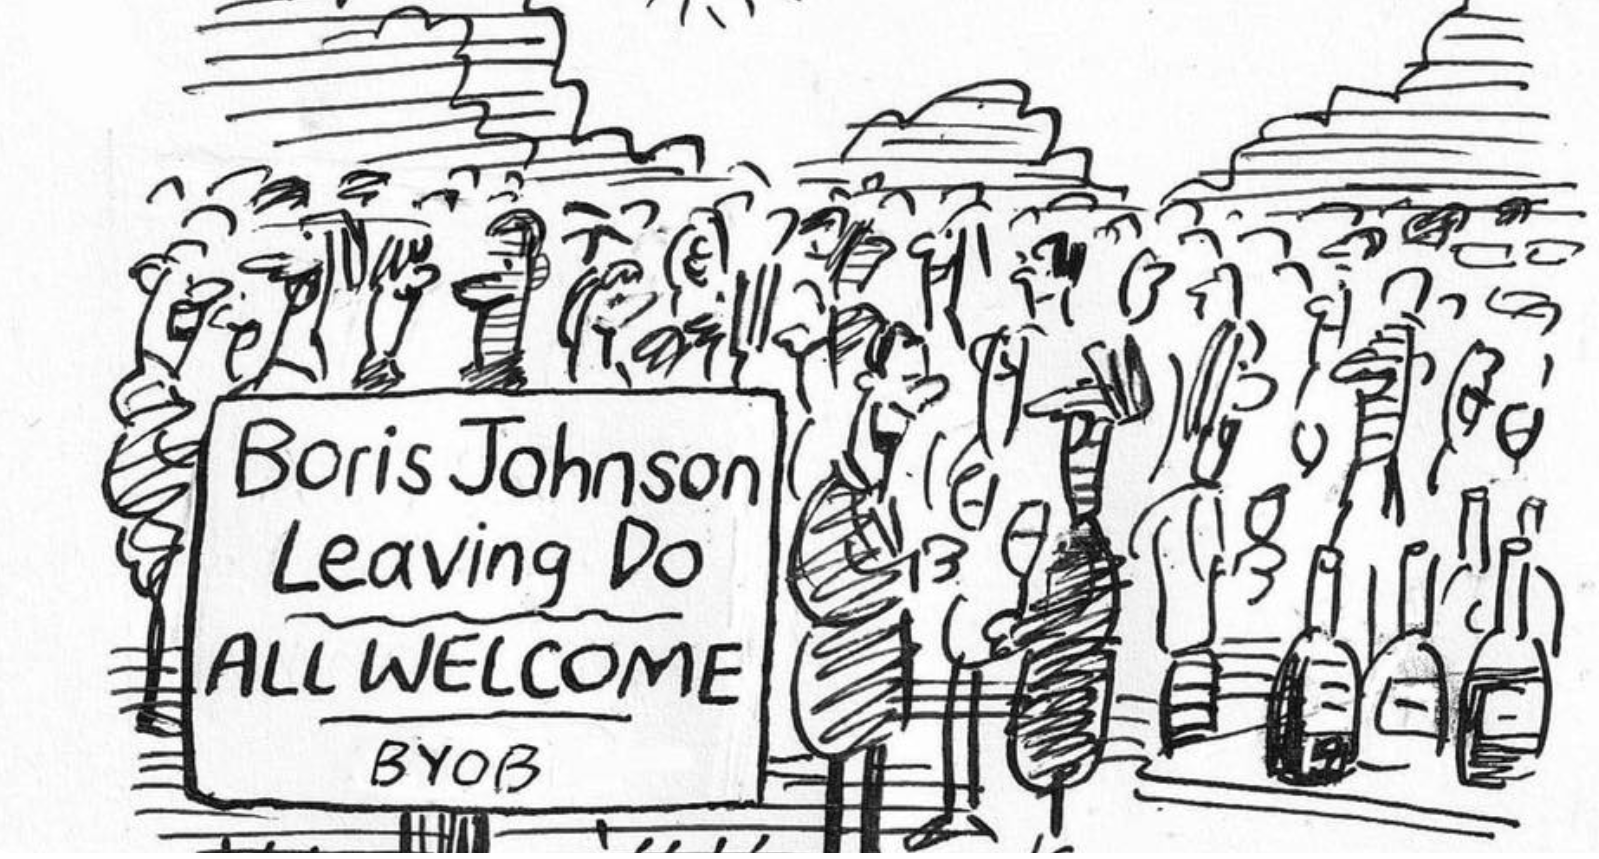 Boris Johnson
Leaving Do
ALL WELCOME
BYOB